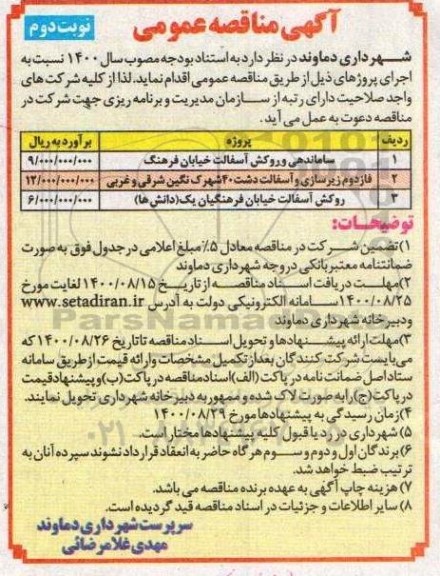 آگهی مناقصه عمومی
نوبت دوم
شهرداری دماوند در نظر دارد به استناد بودجه مصوب سال ۱۴۰۰ نسبت به
اجرای پروژهای ذیل از طریق مناقصه عمومی اقدام نماید. لذا از کلیه شرکت های
واجد صلاحیت دارای رتبه از سازمان مدیریت و برنامه ریزی جهت شرکت در
مناقصه دعوت به عمل می آید.
ردیف پروژه برآورد به ریال
۱ ساماندهی و روکش آسفالت خیابان فرهنگ ۹/۰۰۰/۰۰۰/۰۰۰
۲ فاز دوم زیرسازی و آسفالت دشت ۴۰ شهرک نگین شرقی و غربی ۱۲/۰۰۰/۰۰۰/۰۰۰
۳ روکش آسفالت خیابان فرهنگیان یک (دانش ها) ۶/۰۰۰/۰۰۰/۰۰۰
توضیحات:
۱) تضمین شرکت در مناقصه معادل ۵٪ مبلغ اعلامی در جدول فوق به صورت
ضمانتنامه معتبر بانکی در وجه شهرداری دماوند
۲) مهلت دریافت اسناد مناقصه از تاریخ ۱۴۰۰/۰۸/۱۵ لغایت مورخ
۱۴۰۰/۰۸/۲۵ سامانه الکترونیکی دولت به آدرس www.setadiran.ir
و دبیرخانه شهرداری دماوند
۳) مهلت ارائه پیشنهادها و تحویل اسناد مناقصه تا تاریخ ۱۴۰۰/۰۸/۲۶ که
می بایست شرکت کنندگان بعد از تکمیل مشخصات وارائه قیمت از طریق سامانه
ستاد اصل ضمانت نامه در پاکت (الف) اسناد مناقصه در پاکت (ب) و پیشنهاد قیمت
در پاکت (ج) را به صورت لاک شده و ممهور به دبیرخانه شهرداری تحویل نمایند.
۴) زمان رسیدگی به پیشنهادها مورخ ۱۴۰۰/۰۸/۲۹
۵) شهرداری در رد یا قبول کلیه پیشنهادها مختار است.
۶) برندگان اول و دوم و سوم هرگاه حاضر به انعقاد قرارداد نشوند سپرده آنان به
ترتیب ضبط خواهد شد.
۷) هزینه چاپ آگهی به عهده برنده مناقصه می باشد.
۸) سایر اطلاعات و جزئیات در اسناد مناقصه قید گردیده است.
سرپرست شهرداری دماوند
مهدی غلامرضائی